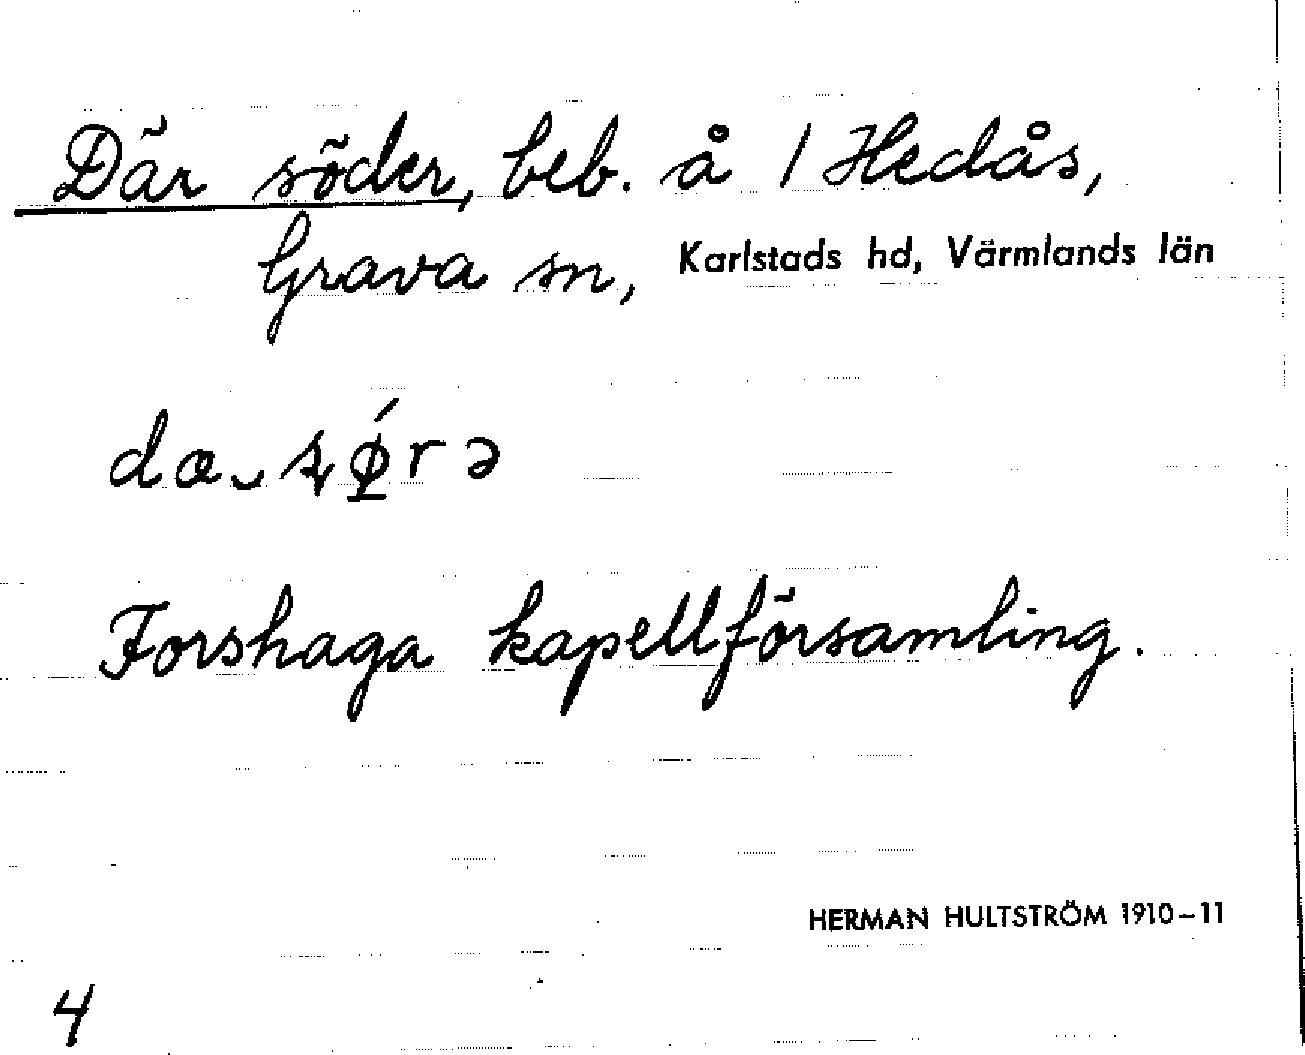 Där söder, beb. å 1 Hedås,
Grava sn, Karlstads hd, Värmlands län
Forshaga kapellförsamling.
HERMAN HULTSTRÖM 1910-11
4